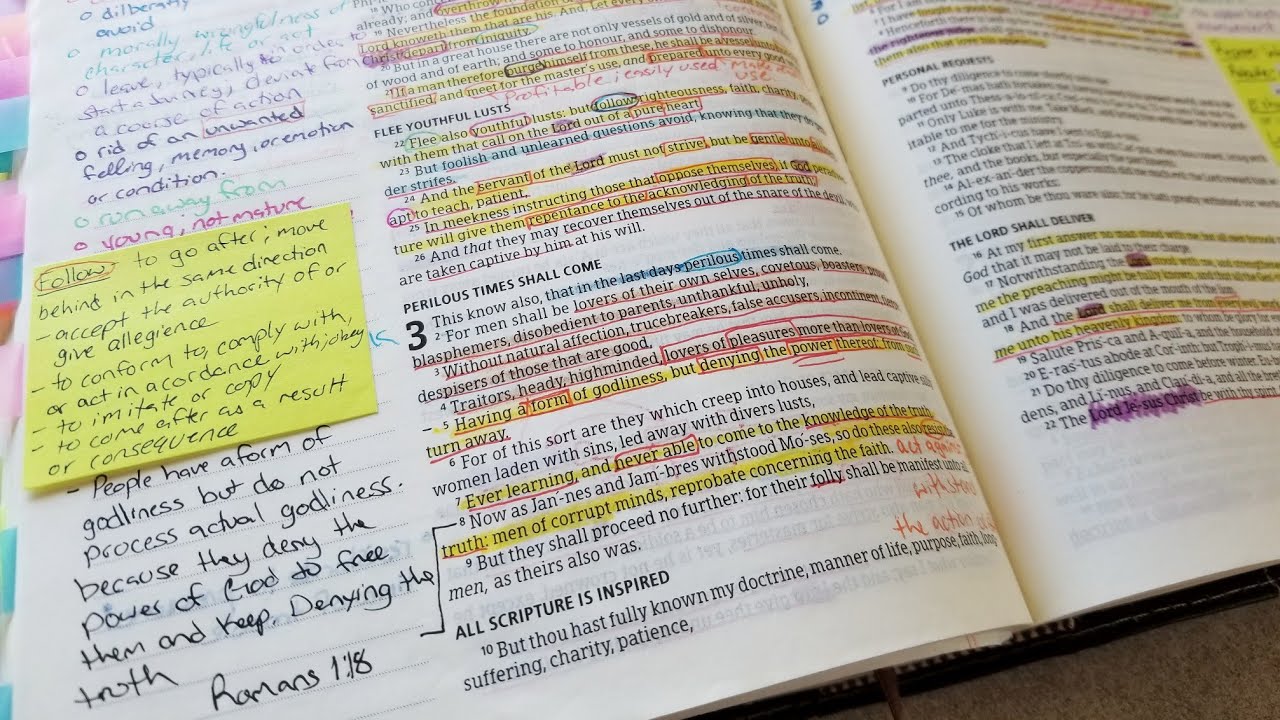 diliberatly
avoid
o morally wrongfulness of
character, life or act
o leave, typically in order to
start a Journey, deviate from
a course of action
o rid of an unwanted
felling, memory, or emotion
or condition.
o run away from
o young, not mature
Follow to go after; move
behind in the same direction
- accept the authority of or
give allegience
- to conform to, comply with,
or act in acordence with; obey
- to imitate or copy
- to come after as a result
or consequence
- People have a form of
godliness but do not
process actual godliness.
because they deny the
power of God to free
them and keep. Denying the
truth
Romans 1:18
already; and overthrow
19 Nevertheless the foundation
Lord knoweth them that are his. And, Let every
Christ depart from iniquity.
20 But in a great house there are not only vessels of gold and of silver,
of wood and of earth; and some to honour, and some to dishonour.
21 If a man therefore purge himself from these, he shall be a vessel unto
sanctified, and meet for the master's use, and prepared unto every good
Profitable; easily used
use
FLEE YOUTHFUL LUSTS
22 Flee also youthful lusts: but follow righteousness, faith, charity,
with them that call on the Lord out of a pure heart
23 But foolish and unlearned questions avoid, knowing that they do
der strifes.
24 And the servant of the Lord must not strive, but be gentle unto
apt to teach, patient.
25 In meekness instructing those that oppose themselves, if God
ture will give them repentance to the acknowledging of the truth;
26 And that they may recover themselves out of the snare of the devil,
are taken captive by him at his will.
PERILOUS TIMES SHALL COME
3 This know also, that in the last days perilous times shall come.
2 For men shall be lovers of their own selves, covetous, boasters, proud,
blasphemers, disobedient to parents, unthankful, unholy,
3 Without natural affection, trucebreakers, false accusers, incontinent, fierce,
despisers of those that are good,
4 Traitors, heady, highminded, lovers of pleasures more than lovers of
5 Having a form of godliness, but denying the power thereof: from
turn away.
6 For of this sort are they which creep into houses, and lead captive
women laden with sins, led away with divers lusts,
7 Ever learning, and never able to come to the knowledge of the truth.
8 Now as Jan´-nes and Jam´-bres withstood Mo´-ses, so do these also resist
truth: men of corrupt minds, reprobate concerning the faith.
act against
9 But they shall proceed no further: for their folly shall be manifest unto
withstand
men, as theirs also was.
the action of
ALL SCRIPTURE IS INSPIRED
10 But thou hast fully known my doctrine, manner of life, purpose, faith, long-
suffering, charity, patience,
them also that love his
PERSONAL REQUESTS
9 Do thy diligence to come
10 For De´-mas hath forsaken me,
parted unto Thess
11 Only Luke is with me.
itable to me for the ministry.
12 And Tych´-i-cus have I sent to
13 The cloke that I left at
thee, and the books, but especially
14 Al-ex-an´-der the coppersmith
cording to his works:
15 Of whom be thou ware also;
THE LORD SHALL DELIVER
16 At my first answer no man stood with me,
God that it may not be laid to their charge.
17 Notwithstanding the
me the preaching might be fully known, and
and I was delivered out of the mouth of the
18 And the Lord shall deliver me from
me unto his heavenly kingdom: to whom be glory
19 Salute Pris´-ca and A´-quil-a, and the household
20 E-ras´-tus abode at Cor´-inth: but Troph´-i-mus
21 Do thy diligence to come before winter.
dens, and Li´-nus, and Clau´-di-a, and all the
22 The Lord Je´-sus Christ be with thy